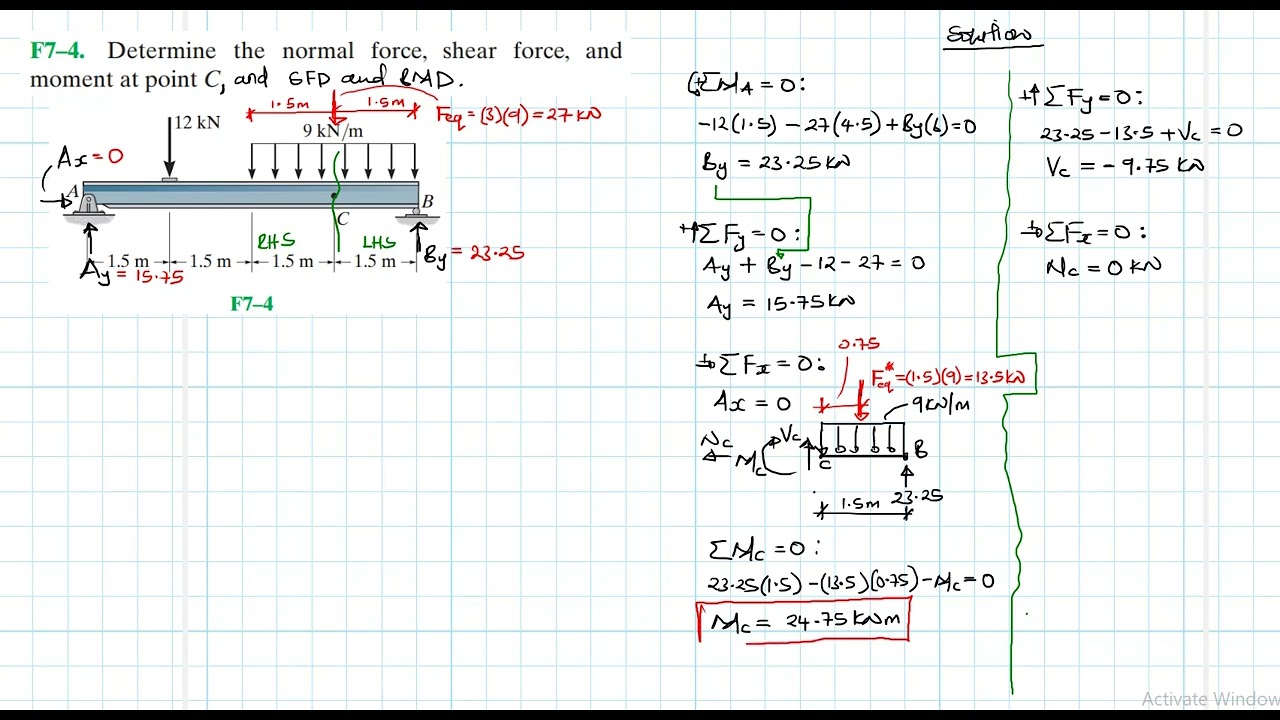 Solution
F7–4. Determine the normal force, shear force, and
moment at point C, and SFD and BMD.
1.5m 1.5m
Feq = (3)(9) = 27 kN
12 kN
9 kN/m
Ax = 0
A
B
C
RHS LHS
By = 23.25
1.5 m 1.5 m 1.5 m 1.5 m
Ay = 15.75
F7–4
(+ΣMA = 0:
-12(1.5) - 27(4.5) + By(6) = 0
By = 23.25 kN
+↑ΣFy = 0:
Ay + By - 12 - 27 = 0
Ay = 15.75 kN
→+ ΣFx = 0:
Ax = 0
0.75
F*eq = (1.5)(9) = 13.5 kN
9 kN/m
Nc
Mc
Vc
C
B
1.5m
23.25
ΣMc = 0:
23.25(1.5) - (13.5)(0.75) - Mc = 0
Mc = 24.75 kNm
+↑ΣFy = 0:
23.25 - 13.5 + Vc = 0
Vc = - 9.75 kN
→+ ΣFx = 0:
Nc = 0 kN
Activate Window